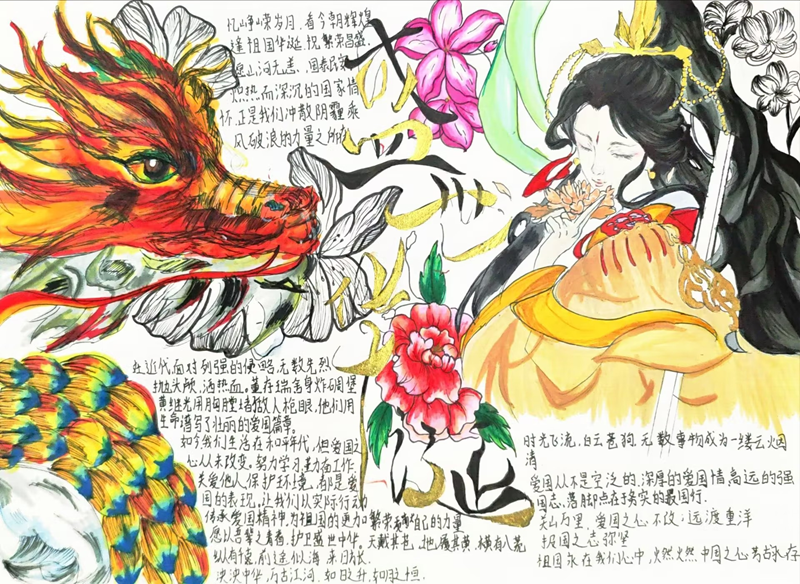 忆峥嵘岁月,看今朝辉煌
逢祖国华诞,祝繁荣昌盛,
愿山河无恙,国泰民
炽热而深沉的国家情
怀,正是我们冲散阴霾乘
风破浪的力量之所
在近代,面对列强的侵略,无数先烈
抛头颅,洒热血。董存瑞舍身炸碉堡
黄继光用胸膛堵敌人枪眼,他们用
生命谱写了壮丽的爱国篇章。
如今我们生活在和平年代,但爱国之
心从未改变。努力学习,勤奋工作,
关爱他人,保护环境,都是爱
国的表现。让我们以实际行动
传承爱国精神,为祖国的更加繁荣 自己的力量
愿以吾辈之青春,护卫盛世中华,天戴其苍,地履其黄,横有八荒
纵有千古,前途似海,来日方长.
泱泱中华,万古江河,如日之升,如月之恒.
时光飞流,白云苍狗,无数事物成为一缕云烟
清
爱国从不是空泛的,深厚的爱国情,高远的强
国志,落脚点在于务实的
关山万里,爱国之心不改;远渡重洋
报国之志弥坚
祖国永在我们心中,火燃火燃,中国之心万古永存